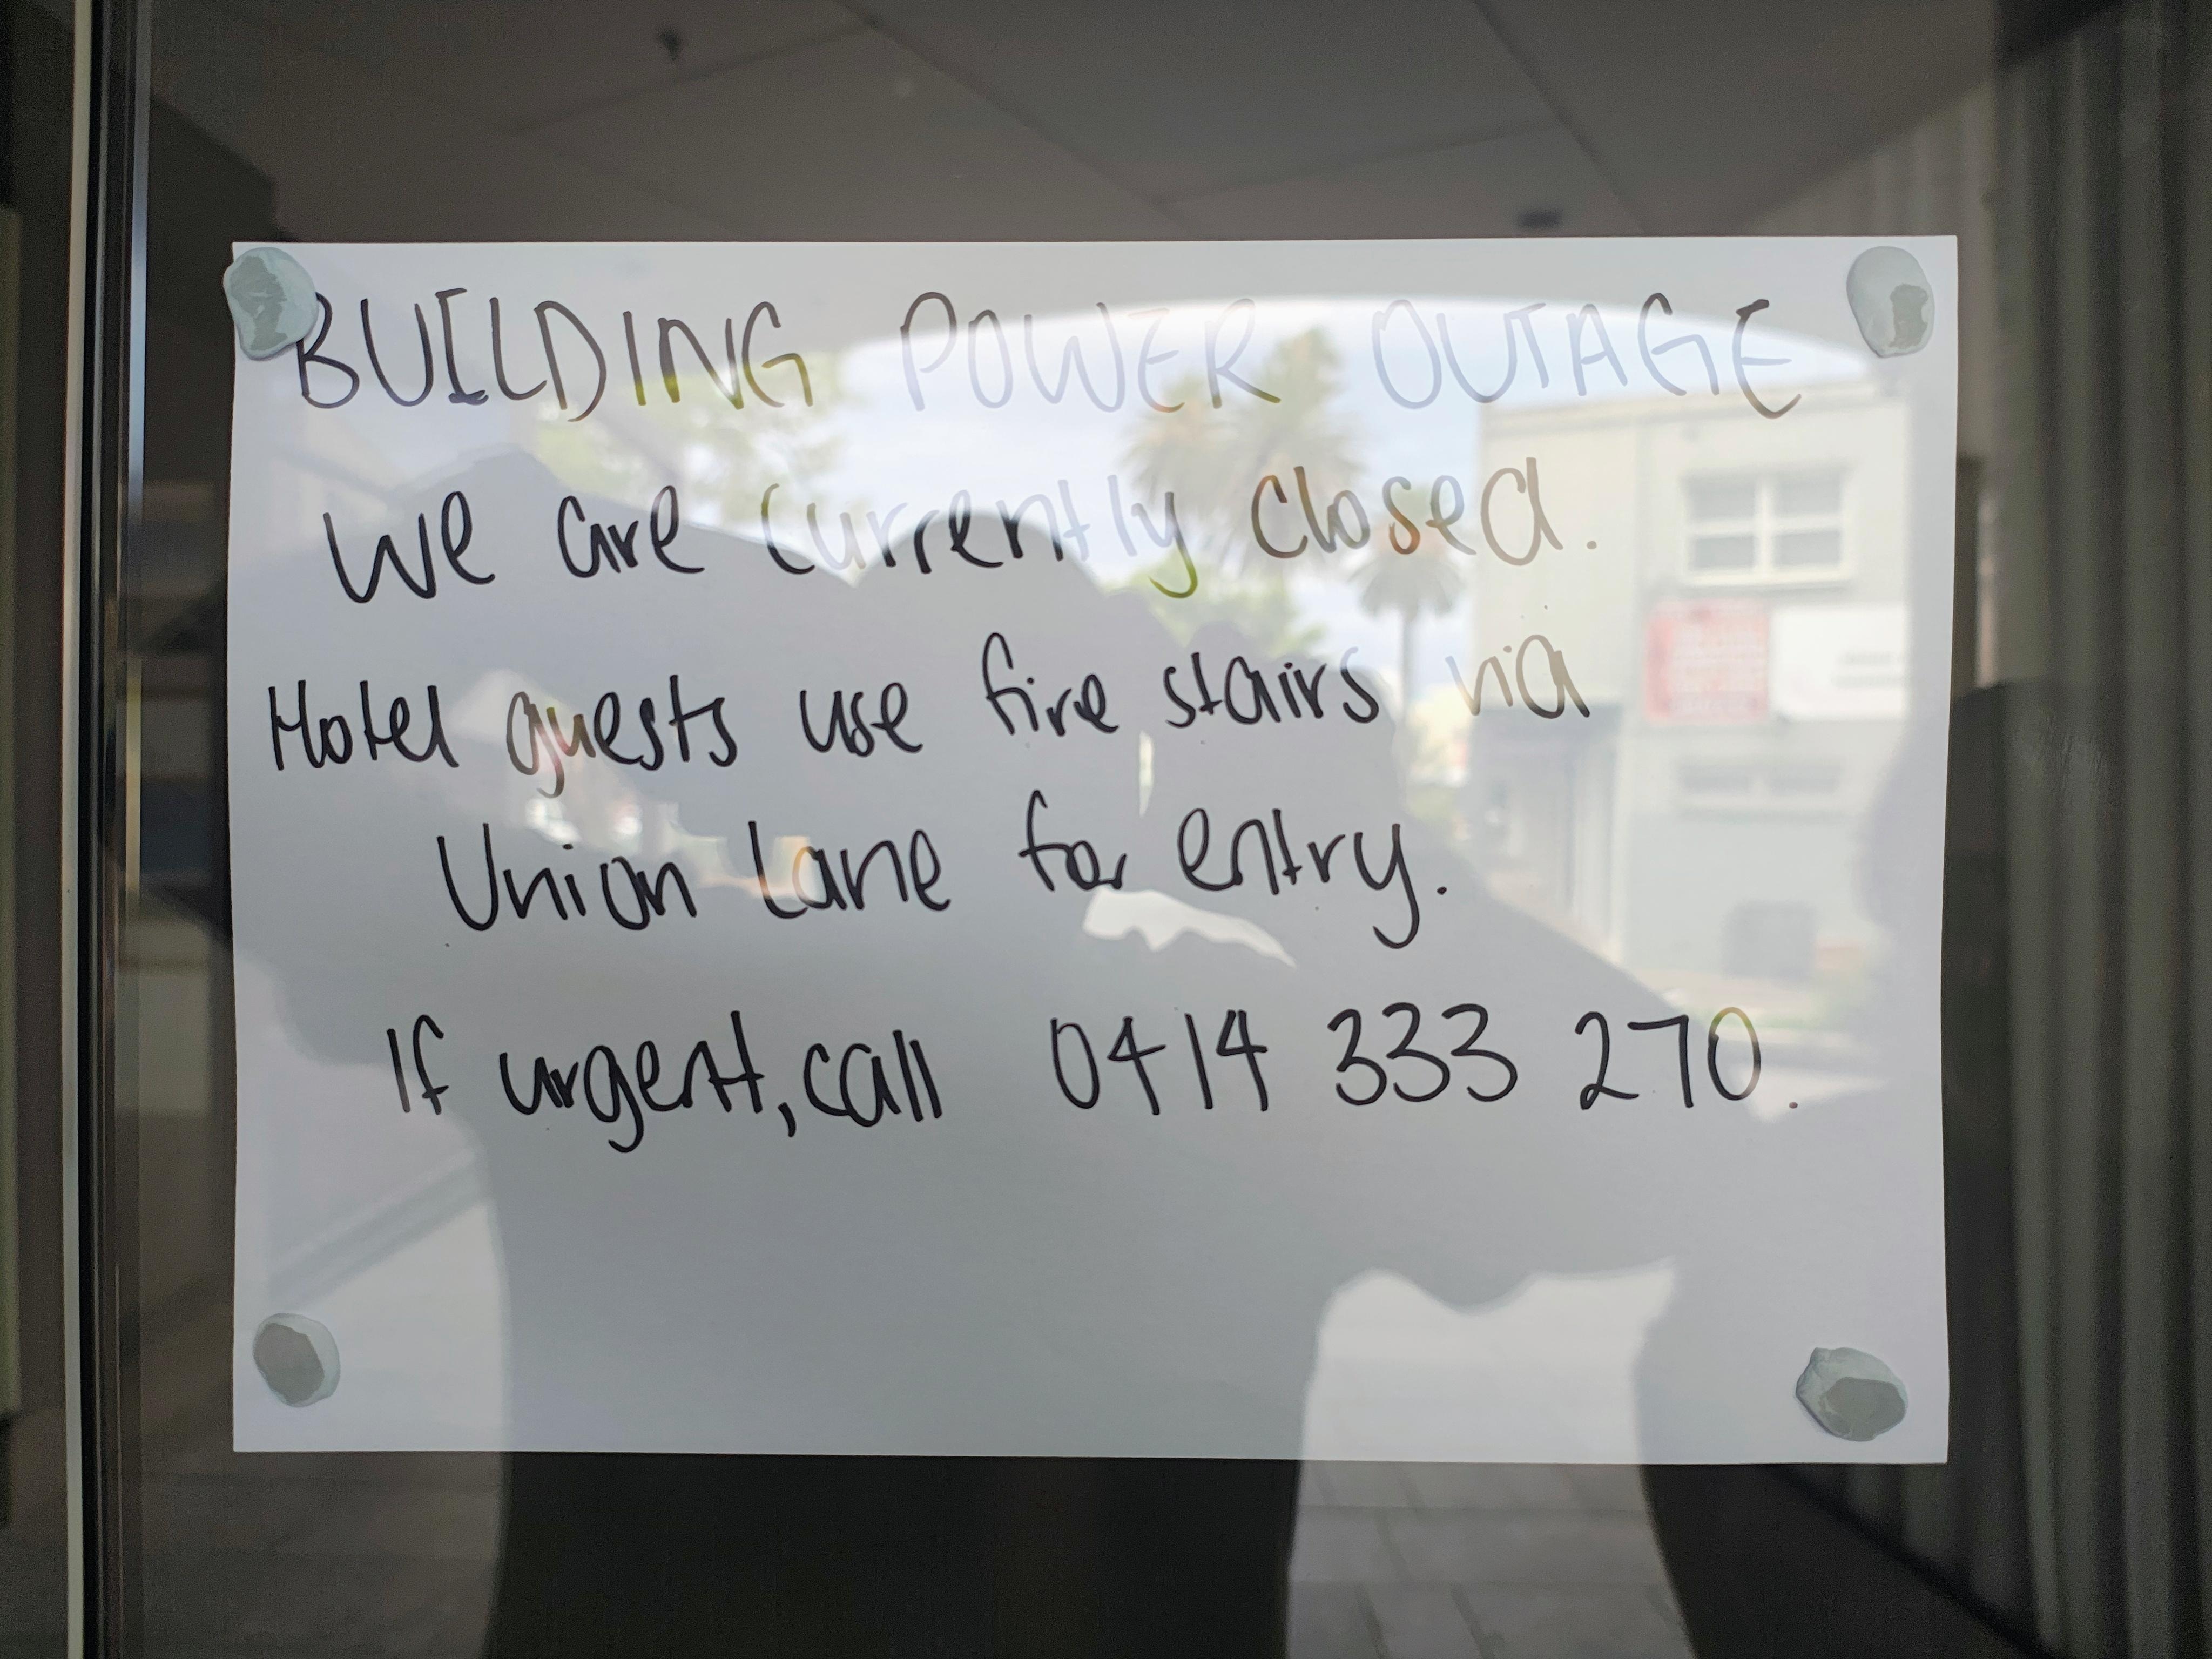 BUILDING POWER OUTAGE
We are currently closed.
Hotel guests use fire stairs via
Union Lane for entry.
If urgent, call 0414 333 270.